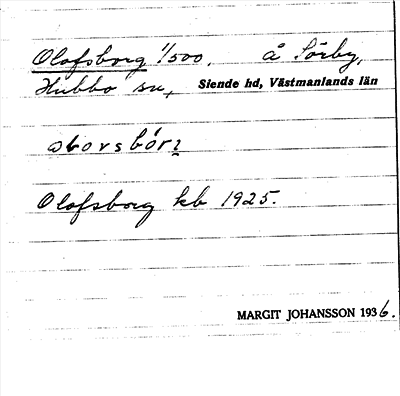 Olofsborg 1/500, å Sörby,
Hubbo sn, Siende hd, Västmanlands län
Olofsborg kb 1925.
MARGIT JOHANSSON 1936.